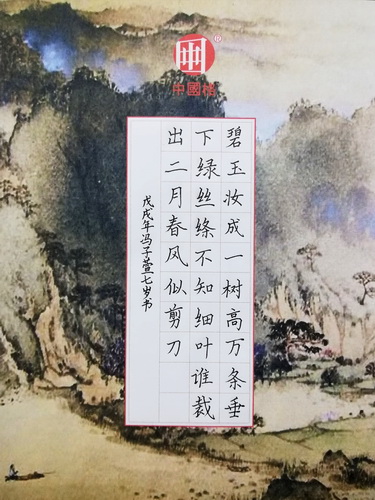 中國格
碧玉妆成一树高万条垂
下绿丝绦不知细叶谁裁
出二月春风似剪刀
戊戌年冯子萱七岁书